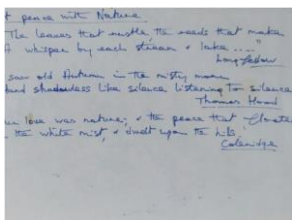 t peace with Nature
The leaves that rustle, the reeds that make
A whisper by each stream & lake ...."
Longfellow
saw old Autumn in the misty morn
tand shadowless like silence listening to silence
Thomas Hood
love was nature; & the peace that floats
the white mist, & dwelt upon the hills
Coleridge